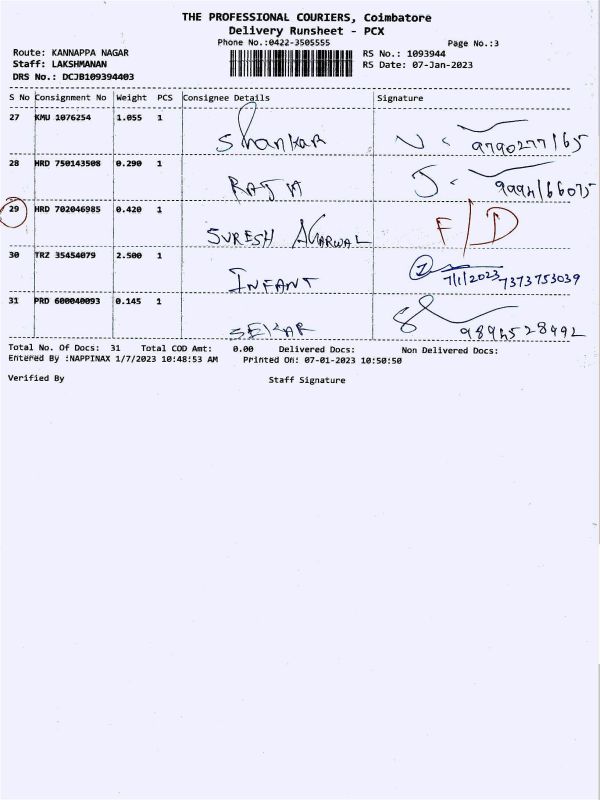 THE PROFESSIONAL COURIERS, Coimbatore
Delivery Runsheet - PCX
Phone No.:0422-3505555
Page No.:3
Route: KANNAPPA NAGAR
RS No.: 1093944
Staff: LAKSHMANAN
RS Date: 07-Jan-2023
DRS No.: DCJB109394403
S No Consignment No Weight PCS Consignee Details Signature
27 KMU 1076254 1.055 1
Shankar 9790277165
28 HRD 750143508 0.290 1
RAJA
29 HRD 702046985 0.420 1
SURESH AGARWAL F/D
30 TRZ 35454079 2.500 1
INFANT 7/1/2023 7373753039
31 PRD 600040093 0.145 1
SEKAR
Total No. Of Docs: 31 Total COD Amt: 0.00 Delivered Docs: Non Delivered Docs:
Entered By :NAPPINAX 1/7/2023 10:48:53 AM Printed On: 07-01-2023 10:50:50
Verified By Staff Signature